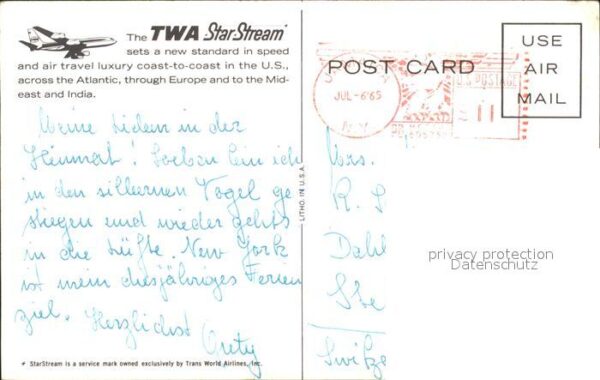 The TWA StarStream*
sets a new standard in speed
and air travel luxury coast-to-coast in the U.S.,
across the Atlantic, through Europe and to the Mid-
east and India.
Meine beiden in der
Heimat! Soeben bin ich
in den silbernen Vogel ge
stiegen und wieder gehts
in die Lüfte. New York
ist mein diesjähriges Ferien
ziel. Herzlichst
* StarStream is a service mark owned exclusively by Trans World Airlines, Inc.
LITHO. IN U.S.A.
POST CARD
USE
AIR
MAIL
JUL-6'65
N.Y.
U.S. POSTAGE
11
Mrs.
R. S
Dahl
Ste
Switze
privacy protection
Datenschutz